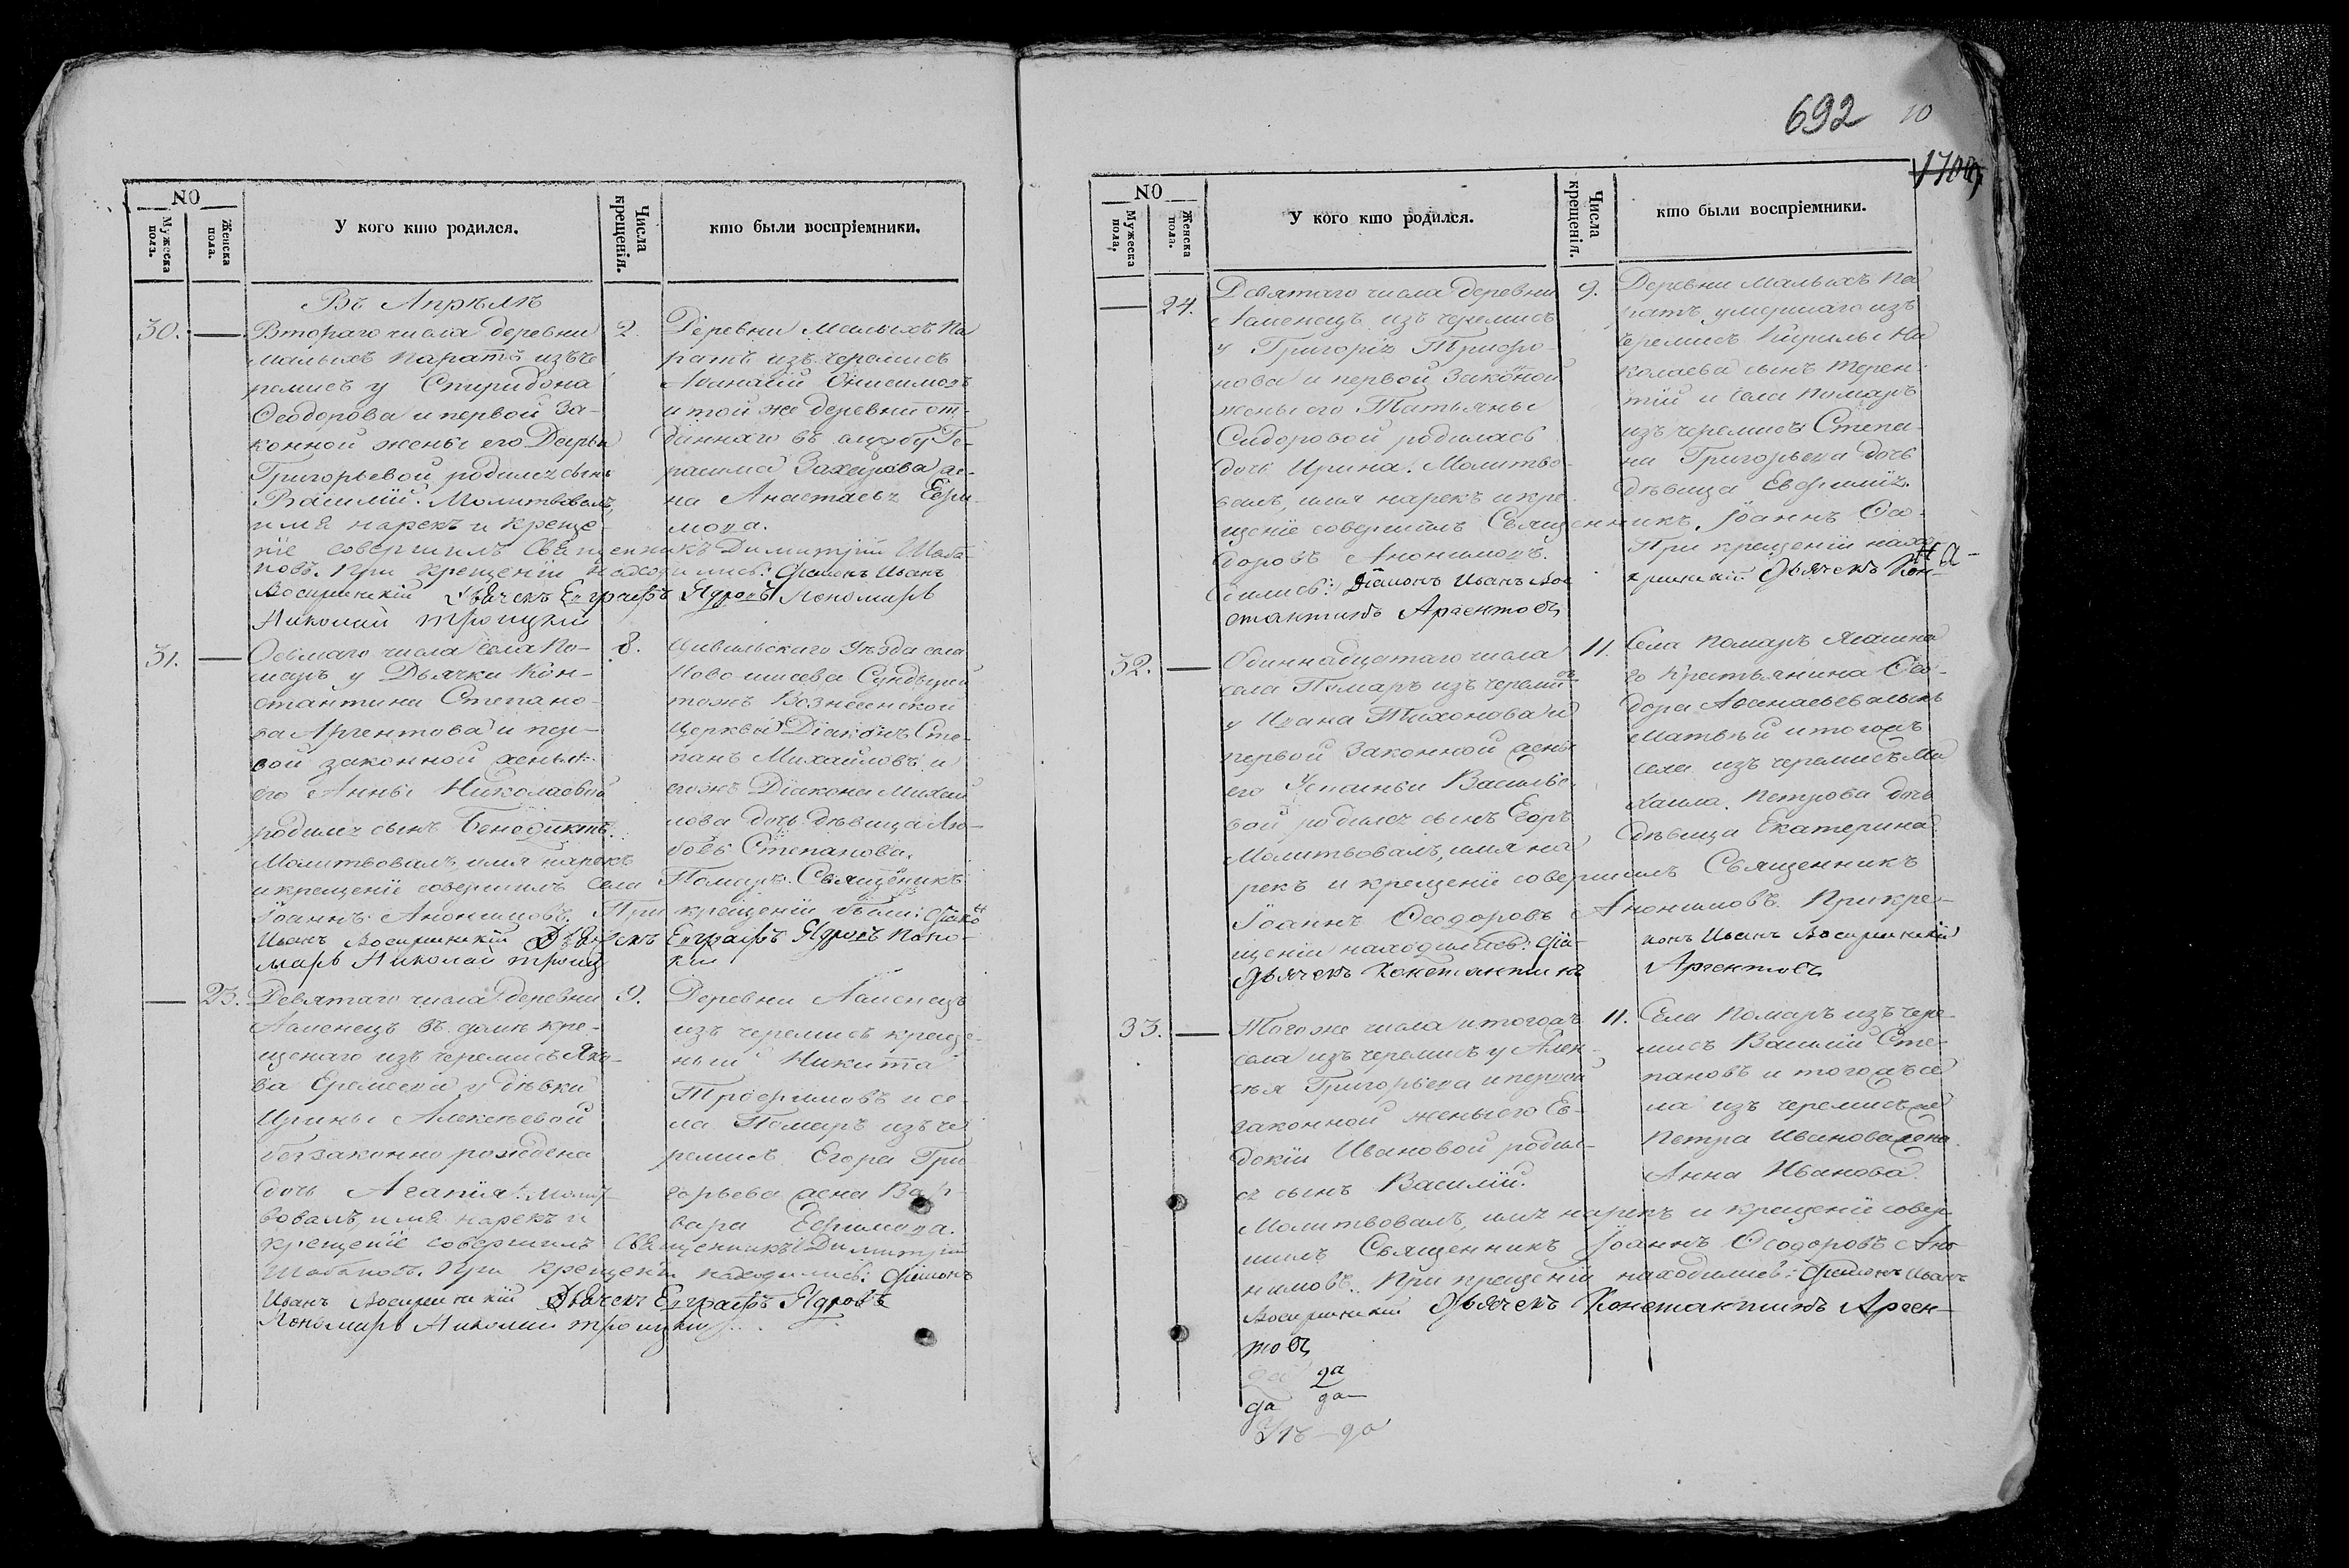 NO
Мужеска пола.
Женска пола.
У кого кто родился.
Числа крещенія.
кто были воспріемники.
Въ Апрѣлѣ
30. — Втораго числа деревни
Малыхъ Паратъ изъ че
ремисъ у Спиридона
Ѳеодорова и первой за-
конной жены его Дарьи
Григорьевой родился сынъ
Василій. Молитвовалъ,
имя нарекъ и креще-
ніе совершилъ Священникъ Димитрій Шаба-
новъ. При крещеніи находились: Діаконъ Иванъ
Воскресенскій Дьячекъ Евграфъ Ядровъ Пономарь
Николай Троицкій
2. Деревни Малыхъ Па
ратъ изъ черемисъ
Аѳанасій Онисимовъ
и той же деревни от-
даннаго въ службу Ге-
расима Захарова же-
на Анастасья Ефи-
мова.
31. — Осьмаго числа села По-
маръ у Дьячка Кон-
стантина Степано-
ва Аргентова и пер-
вой законной жены
его Анны Николаевой
родился сынъ Бенедиктъ.
Молитвовалъ, имя нарекъ
и крещеніе совершилъ села Помаръ Священникъ
Іоаннъ Анонимовъ. При крещеніи были: Діаконъ
Иванъ Воскресенскій Дьячекъ Евграфъ Ядровъ Поно-
марь Николай Троиц кій
8. Цивильскаго Уѣзда села
тожъ Вознесенской
Церкви Діаконъ Сте-
панъ Михайловъ и
егожъ Діакона Михай
лова дочь дѣвица Лю-
бовь Степанова.
— 23. Девятаго числа деревни
Аменецъ въ домѣ кре-
щенаго изъ черемисъ Яко-
ва Еремеева у дѣвки
Ирины Алексѣевой
беззаконно рождена
дочь Агапія. Молит-
вовалъ, имя нарекъ и
крещеніе совершилъ Священникъ Димитрій
Шабановъ. При крещеніи находились: Діаконъ
Иванъ Воскресенскій Дьячекъ Евграфъ Ядровъ
Пономарь Николай Троицкій
9. Деревни Аменецъ
изъ черемисъ креще-
ный Никита
Трофимовъ и се-
ла Помаръ изъ че
ремисъ Егора Гри
горьева жена Вар-
вара Ефимова.
692
10
1709
NO
Мужеска пола.
Женска пола.
У кого кто родился.
Числа крещенія.
кто были воспріемники.
— 24. Девятаго числа деревни
Аменецъ изъ черемисъ
у Григорія Трифо-
нова и первой законой
жены его Татьяны
Сидоровой родилась
дочь Ирина. Молитво-
валъ, имя нарекъ и кре-
щеніе совершилъ Священникъ, Іоаннъ Ѳео-
доровъ Анонимовъ. При крещеніи нахо-
дились: Діаконъ Иванъ Вос кресенскій Дьячекъ Кон-
стантинъ Аргентовъ
9. Деревни Малыхъ Па
ратъ умершаго изъ
черемисъ Кирилы Ни
колаева сынъ Терен-
тій и села Помаръ
изъ черемисъ Степа-
на Григорьева дочь
дѣвица Евфимія.
32. — Одиннадцатаго числа
села Помаръ изъ черемисъ
у Ивана Тихонова и
первой законной жены
его Устиньи Василье-
вой родился сынъ Егоръ.
Молитвовалъ, имя на
рекъ и крещеніе совершилъ Священникъ
Іоаннъ Ѳеодоровъ Анонимовъ. При кре-
щеніи находились: Діа- конъ Иванъ Воскресенскій
Дьячекъ Константинъ Аргентовъ
11. Села Помаръ Ясашна
го Крестьянина Ѳео-
дора Аѳанасьева сынъ
Матвѣй и тогожъ
села изъ черемисъ Ми
хаила Петрова дочь
дѣвица Екатерина
33. — Того же числа и тогожъ
села изъ черемисъ у Алек-
сѣя Григорьева и первой
законной жены его Ев-
докіи Ивановой родил-
ся сынъ Василій.
Молитвовалъ, имя нарекъ и крещеніе совер-
шилъ Священникъ Іоаннъ Ѳеодоровъ Ано
нимовъ. При крещеніи находились: Діаконъ Иванъ
Воскресенскій Дьячекъ Константинъ Арген-
товъ
11. Села Помаръ изъ чере-
мисъ Василій Сте-
пановъ и тогожъ се
ла изъ черемисъ
Петра Иванова жена
Анна Иванова.
да
да
да